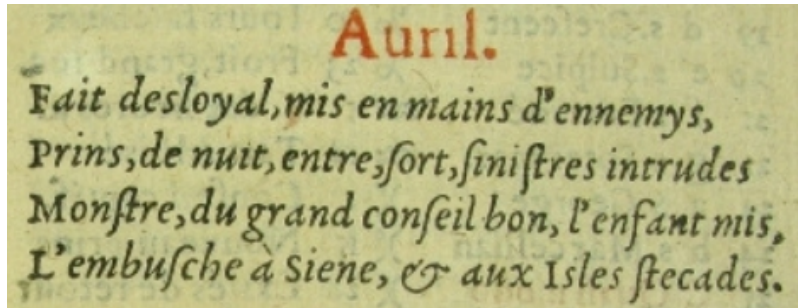 Auril.
Fait desloyal, mis en mains d'ennemys,
Prins, de nuit, entre, ſort, ſiniſtres intrudes
Monſtre, du grand conſeil bon, l'enfant mis,
L'embuſche à Siene, & aux Isles ſtecades.